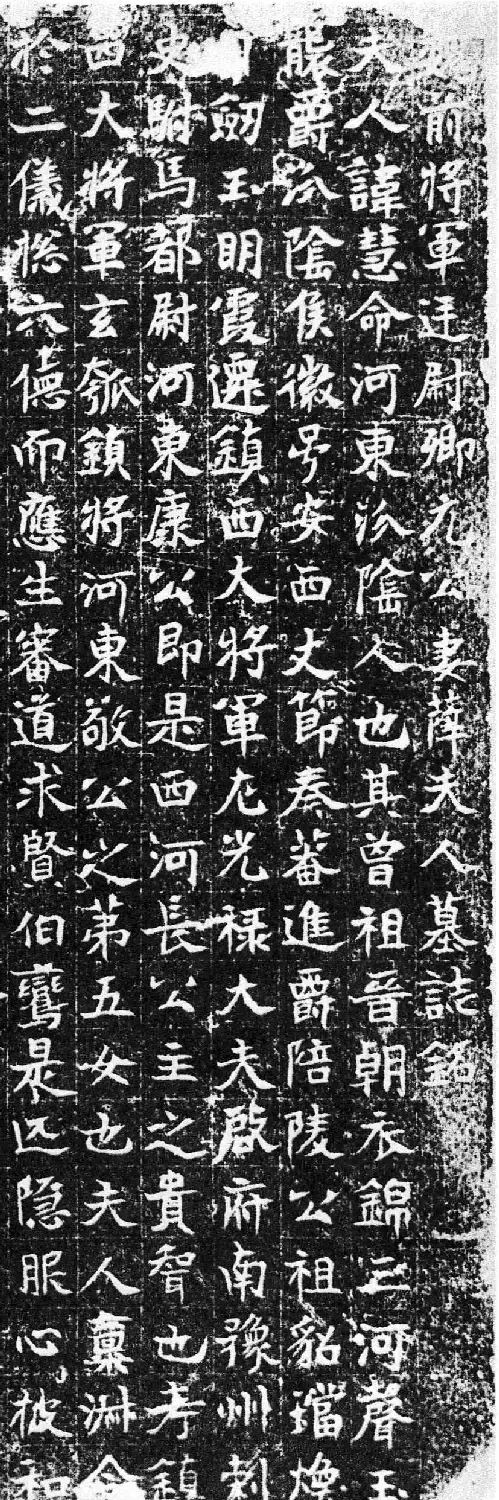 魏前將軍廷尉卿元公妻薛夫人墓誌銘
夫人諱慧命河東汾陰人也其曾祖晉朝衣錦三河聲玉
襲爵汾陰侯徽号安西丈節秦蕃進爵陪陵公祖貂璫煥
劒玉明霞遷鎮西大將軍尤光祿大夫啟府南豫州刺
史駙馬都尉河東康公即是西河長公主之貴智也考鎮
西大將軍玄瓠鎮將河東敬公之第五女也夫人稟淋令
於二儀揔六德而應生審道求賢伯鸞是匹隐服心披和